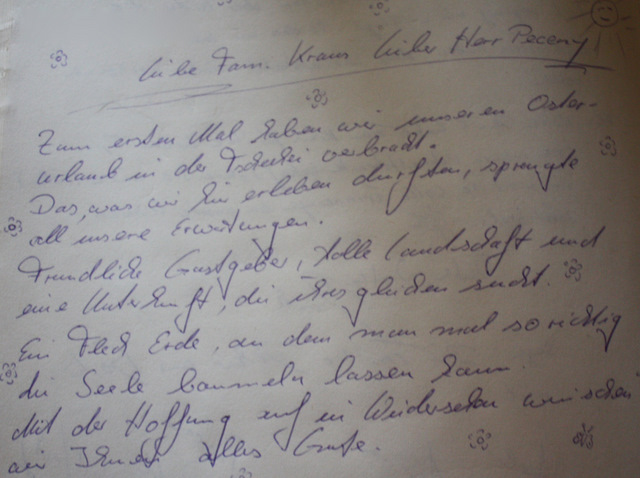 Liebe Fam. Kraus Lieber Herr Peceny
Zum ersten Mal haben wir unseren Oster-
urlaub in der Tschechei verbracht.
Das, was wir hier erleben durften, sprengte
all unsere Erwartungen.
Freundliche Gastgeber, tolle Landschaft und
eine Unterkunft, die ihres gleichen sucht.
Ein Fleck Erde, an dem man mal so richtig
die Seele baumeln lassen kann.
Mit der Hoffnung auf ein Wiedersehen wünschen
wir Ihnen alles Gute.